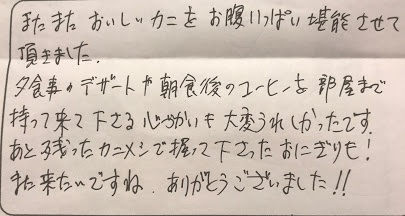 またまた おいしいカニを お腹いっぱい 堪能させて
頂きました。
夕食事のデザートや 朝食後のコーヒーを 部屋まで
持って来て下さる 心づかいも 大変うれしかったです。
あと残ったカニメシで握って下さったおにぎりも!
また来たいですね. ありがとうございました!!